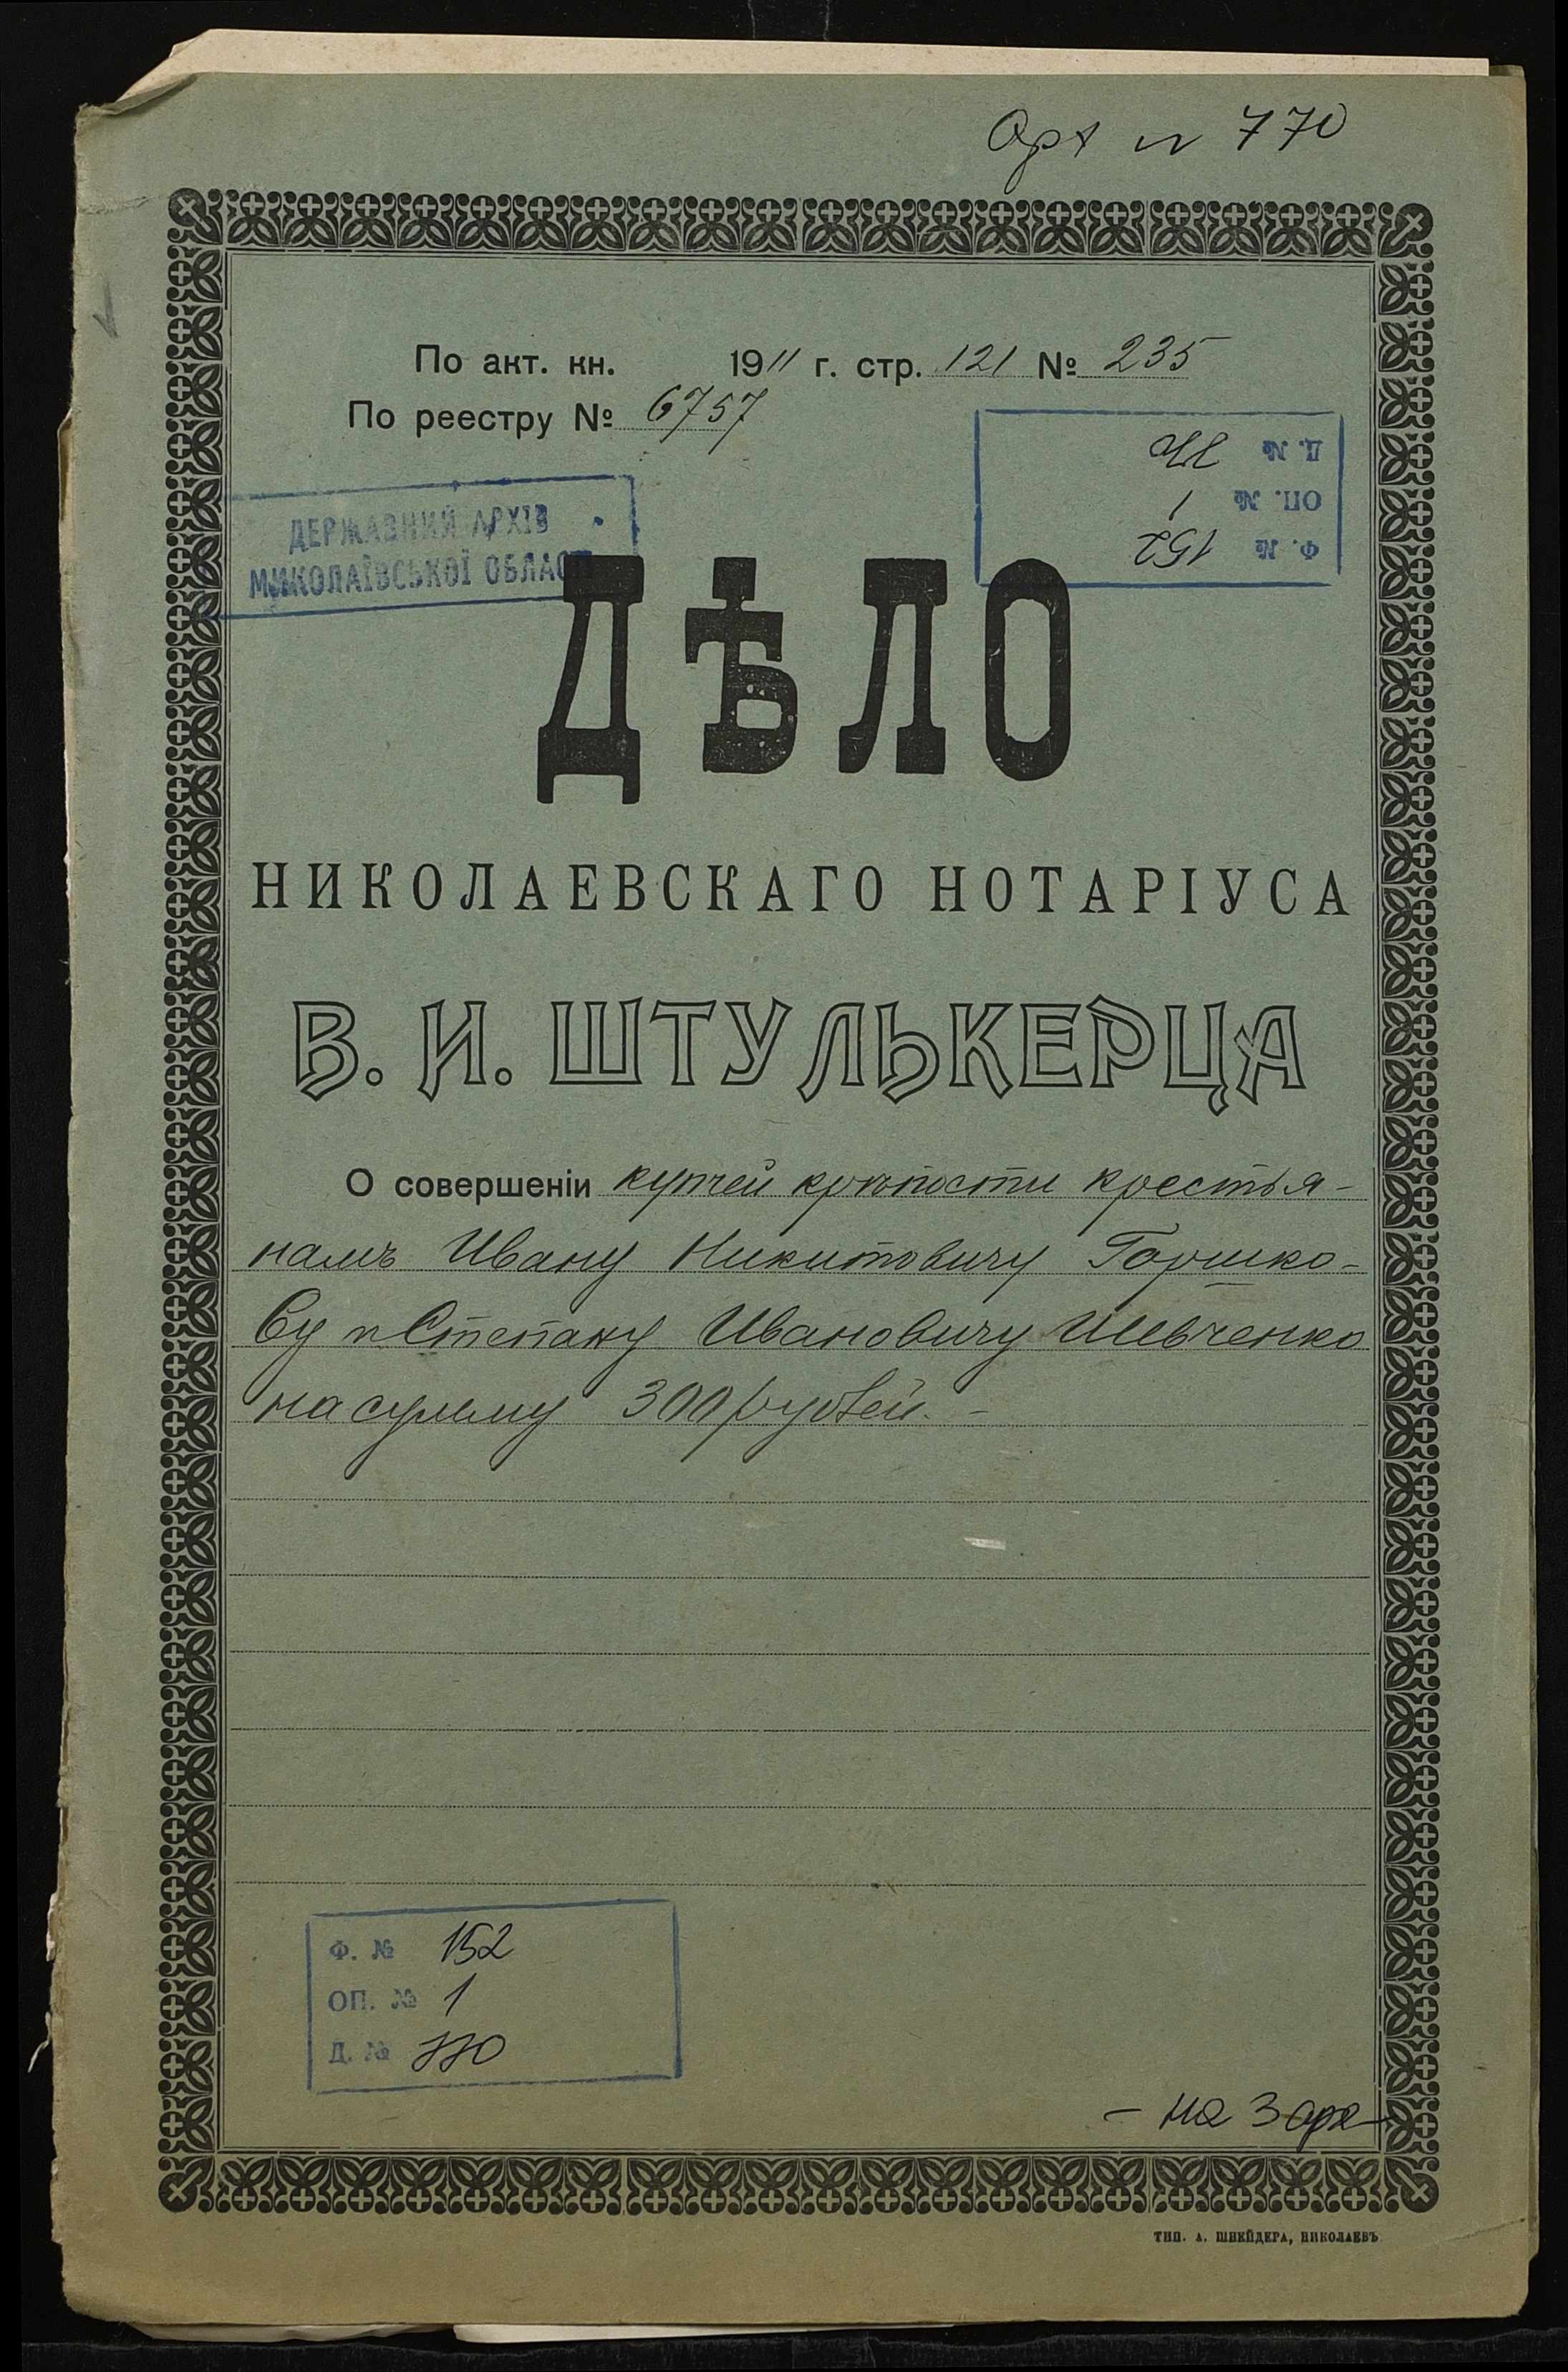 Арх № 770
По акт. кн. 1911 г. стр. 121 № 235
По реестру № 6757
Ф. № 152
ОП. № 1
Д. №
ДЕРЖАВНИЙ АРХІВ
МИКОЛАЇВСЬКОЇ ОБЛАСТІ
ДѢЛО
НИКОЛАЕВСКАГО НОТАРІУСА
В. И. ШТУЛЬКЕРЦА
О совершеніи купчей крѣпости крестья-
намъ Ивану Никитовичу Горшко-
ву и Степану Ивановичу Шевченко
на сумму 300 рублей. -
Ф. № 152
ОП. № 1
Д. № 770
- на 3 арк -
ТИП. А. ШНЕЙДЕРА, НИКОЛАЕВЪ